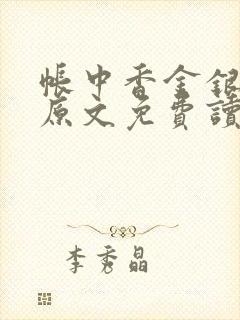 帳中香金銀
原文免費讀
李秀晶